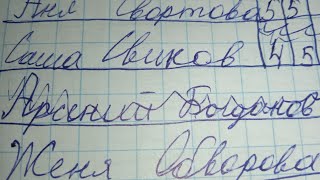 Аня Свортова 5 5
Саша Свиков 4 5
Арсений Богданов
Женя Обворова